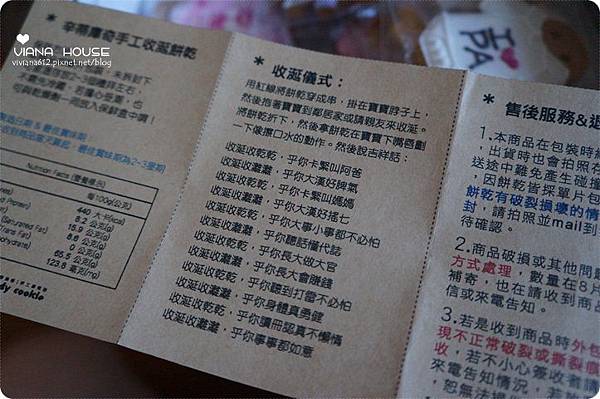 VIANA HOUSE
viviana612.pixnet.net/blog
I
PA
辛蒂摩奇手工收涎餅乾
未拆封下
Nutrition Facts (營養標示)
每100g(公克)
440 大卡(kcal)
8.2 公克(g)
15.9 公克(g)
8.6 公克(g)
0 公克(g)
65.5 公克(g)
123.8 毫克(mg)
dy cookie
* 收涎儀式：
用紅線將餅乾穿成串，掛在寶寶脖子上，
然後抱著寶寶到鄰居家或請親友來收涎。
將餅乾折下，然後拿餅乾在寶寶下嘴唇劃
一下像擦口水的動作。然後說吉祥話：
收涎收乾乾，乎你卡緊叫阿爸
收涎收灕灕，乎你大漢好脾氣
收涎收乾乾，乎你卡緊叫媽媽
收涎收灕灕，乎你大漢好搖七
收涎收乾乾，乎你大事小事都不必怕
收涎收灕灕，乎你聽話懂代誌
收涎收乾乾，乎你長大做大官
收涎收灕灕，乎你長大會賺錢
收涎收乾乾，乎你聽到打雷不必怕
收涎收灕灕，乎你身體真勇健
收涎收乾乾，乎你讀冊認真不懶惰
收涎收灕灕，乎你事事都如意
* 售後服務&退
1.本商品在包裝時
，出貨時也會拍照存
送途中難免產生碰撞
，因餅乾皆採單片包
餅乾有破裂損壞的情
封，請拍照並mail到
待確認。
2.商品破損或其他問題
方式處理，數量在8片
補寄，也在請收到商品
信或來電告知。
3.若是收到商品時外包
現不正常破裂或撕裂痕
收，若不小心簽收者請
來電告知情況，若故